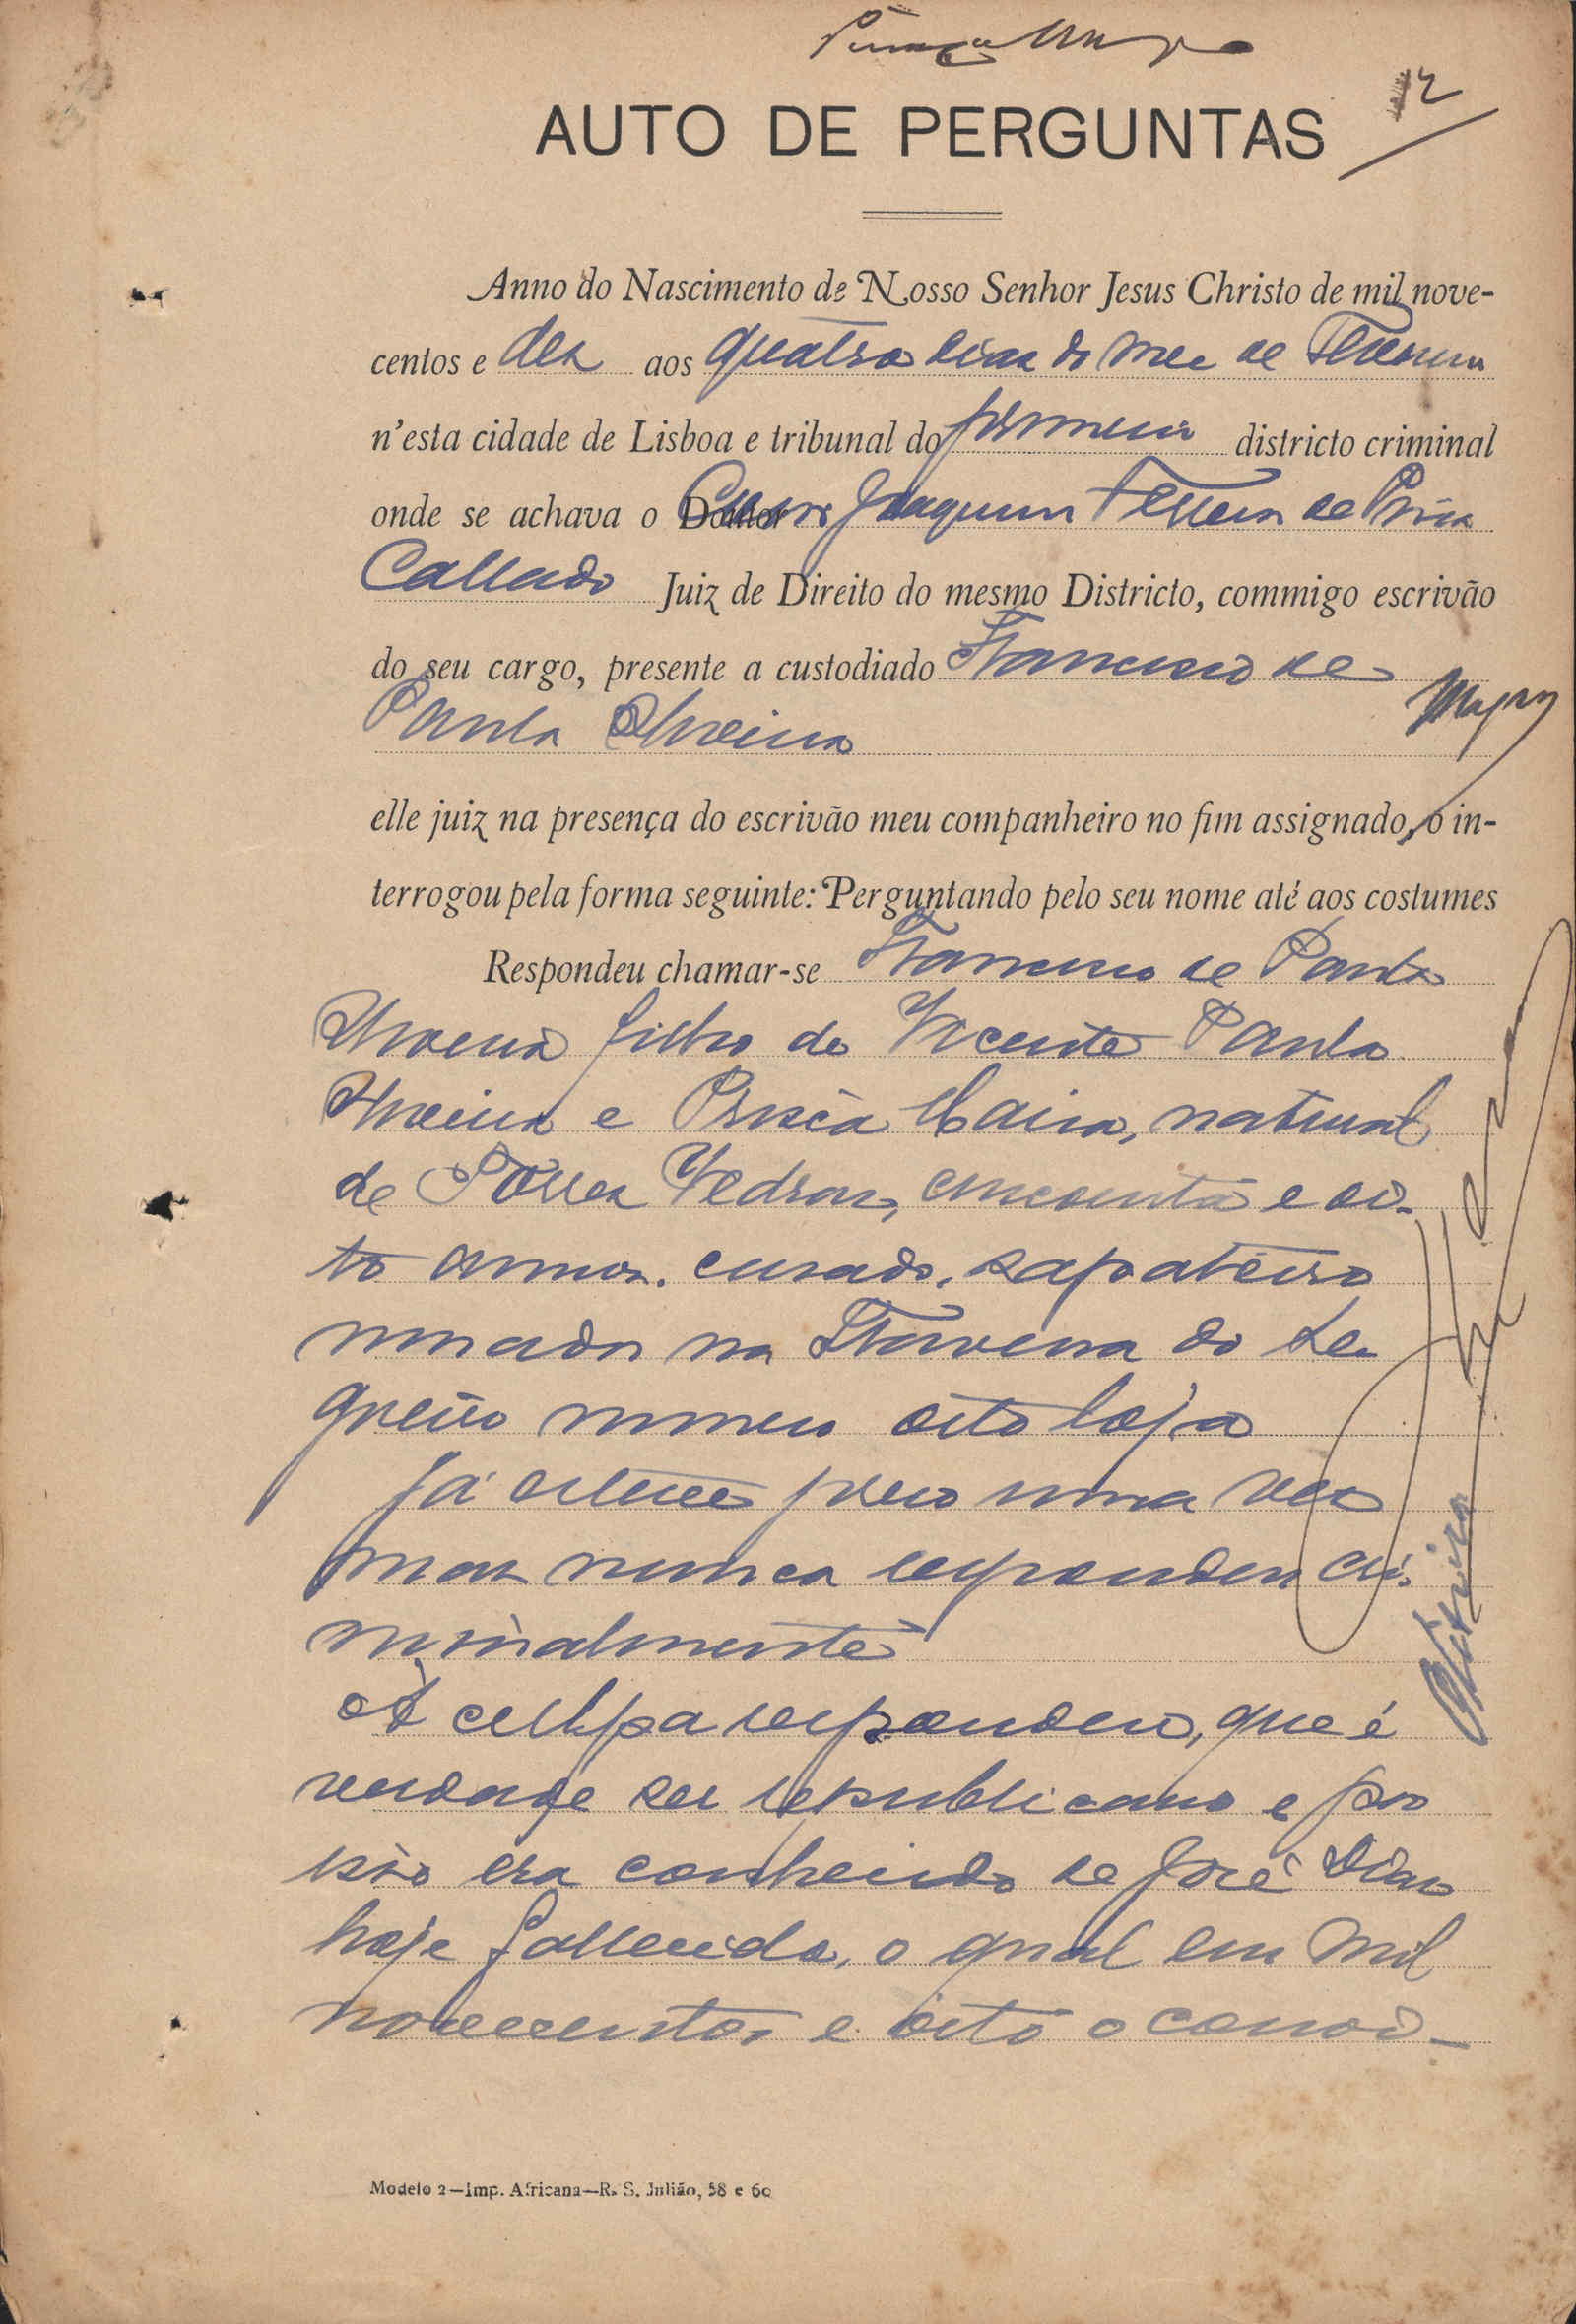 12
AUTO DE PERGUNTAS
Anno do Nascimento de Nosso Senhor Jesus Christo de mil nove-
centos e dez aos quatro dias do mez de
n'esta cidade de Lisboa e tribunal do primeiro districto criminal
onde se achava o Doutor Joaquim de
Callado Juiz de Direito do mesmo Districto, commigo escrivão
do seu cargo, presente a custodiado Francisco de
Paula Oliveira
elle juiz na presença do escrivão meu companheiro no fim assignado, o in-
terrogou pela forma seguinte: Perguntando pelo seu nome até aos costumes
Respondeu chamar-se Francisco de Paula
Oliveira filho de Vicente Paula
Oliveira e Maria, natural
de Torres Vedras, cincoenta e oi-
to annos, casado, sapateiro
morador na Travessa do Se-
queiro numero oito loja
Já esteve preso uma vez
mas nunca respondeu cri-
minalmente
Á culpa respondeu, que é
verdade ser republicano e por
isso era conhecido de José Dias
hoje fallecido, o qual em mil
novecentos e oito o convi-
Oliveira
Modelo 2—Imp. Africana—R. S. Julião, 58 e 60